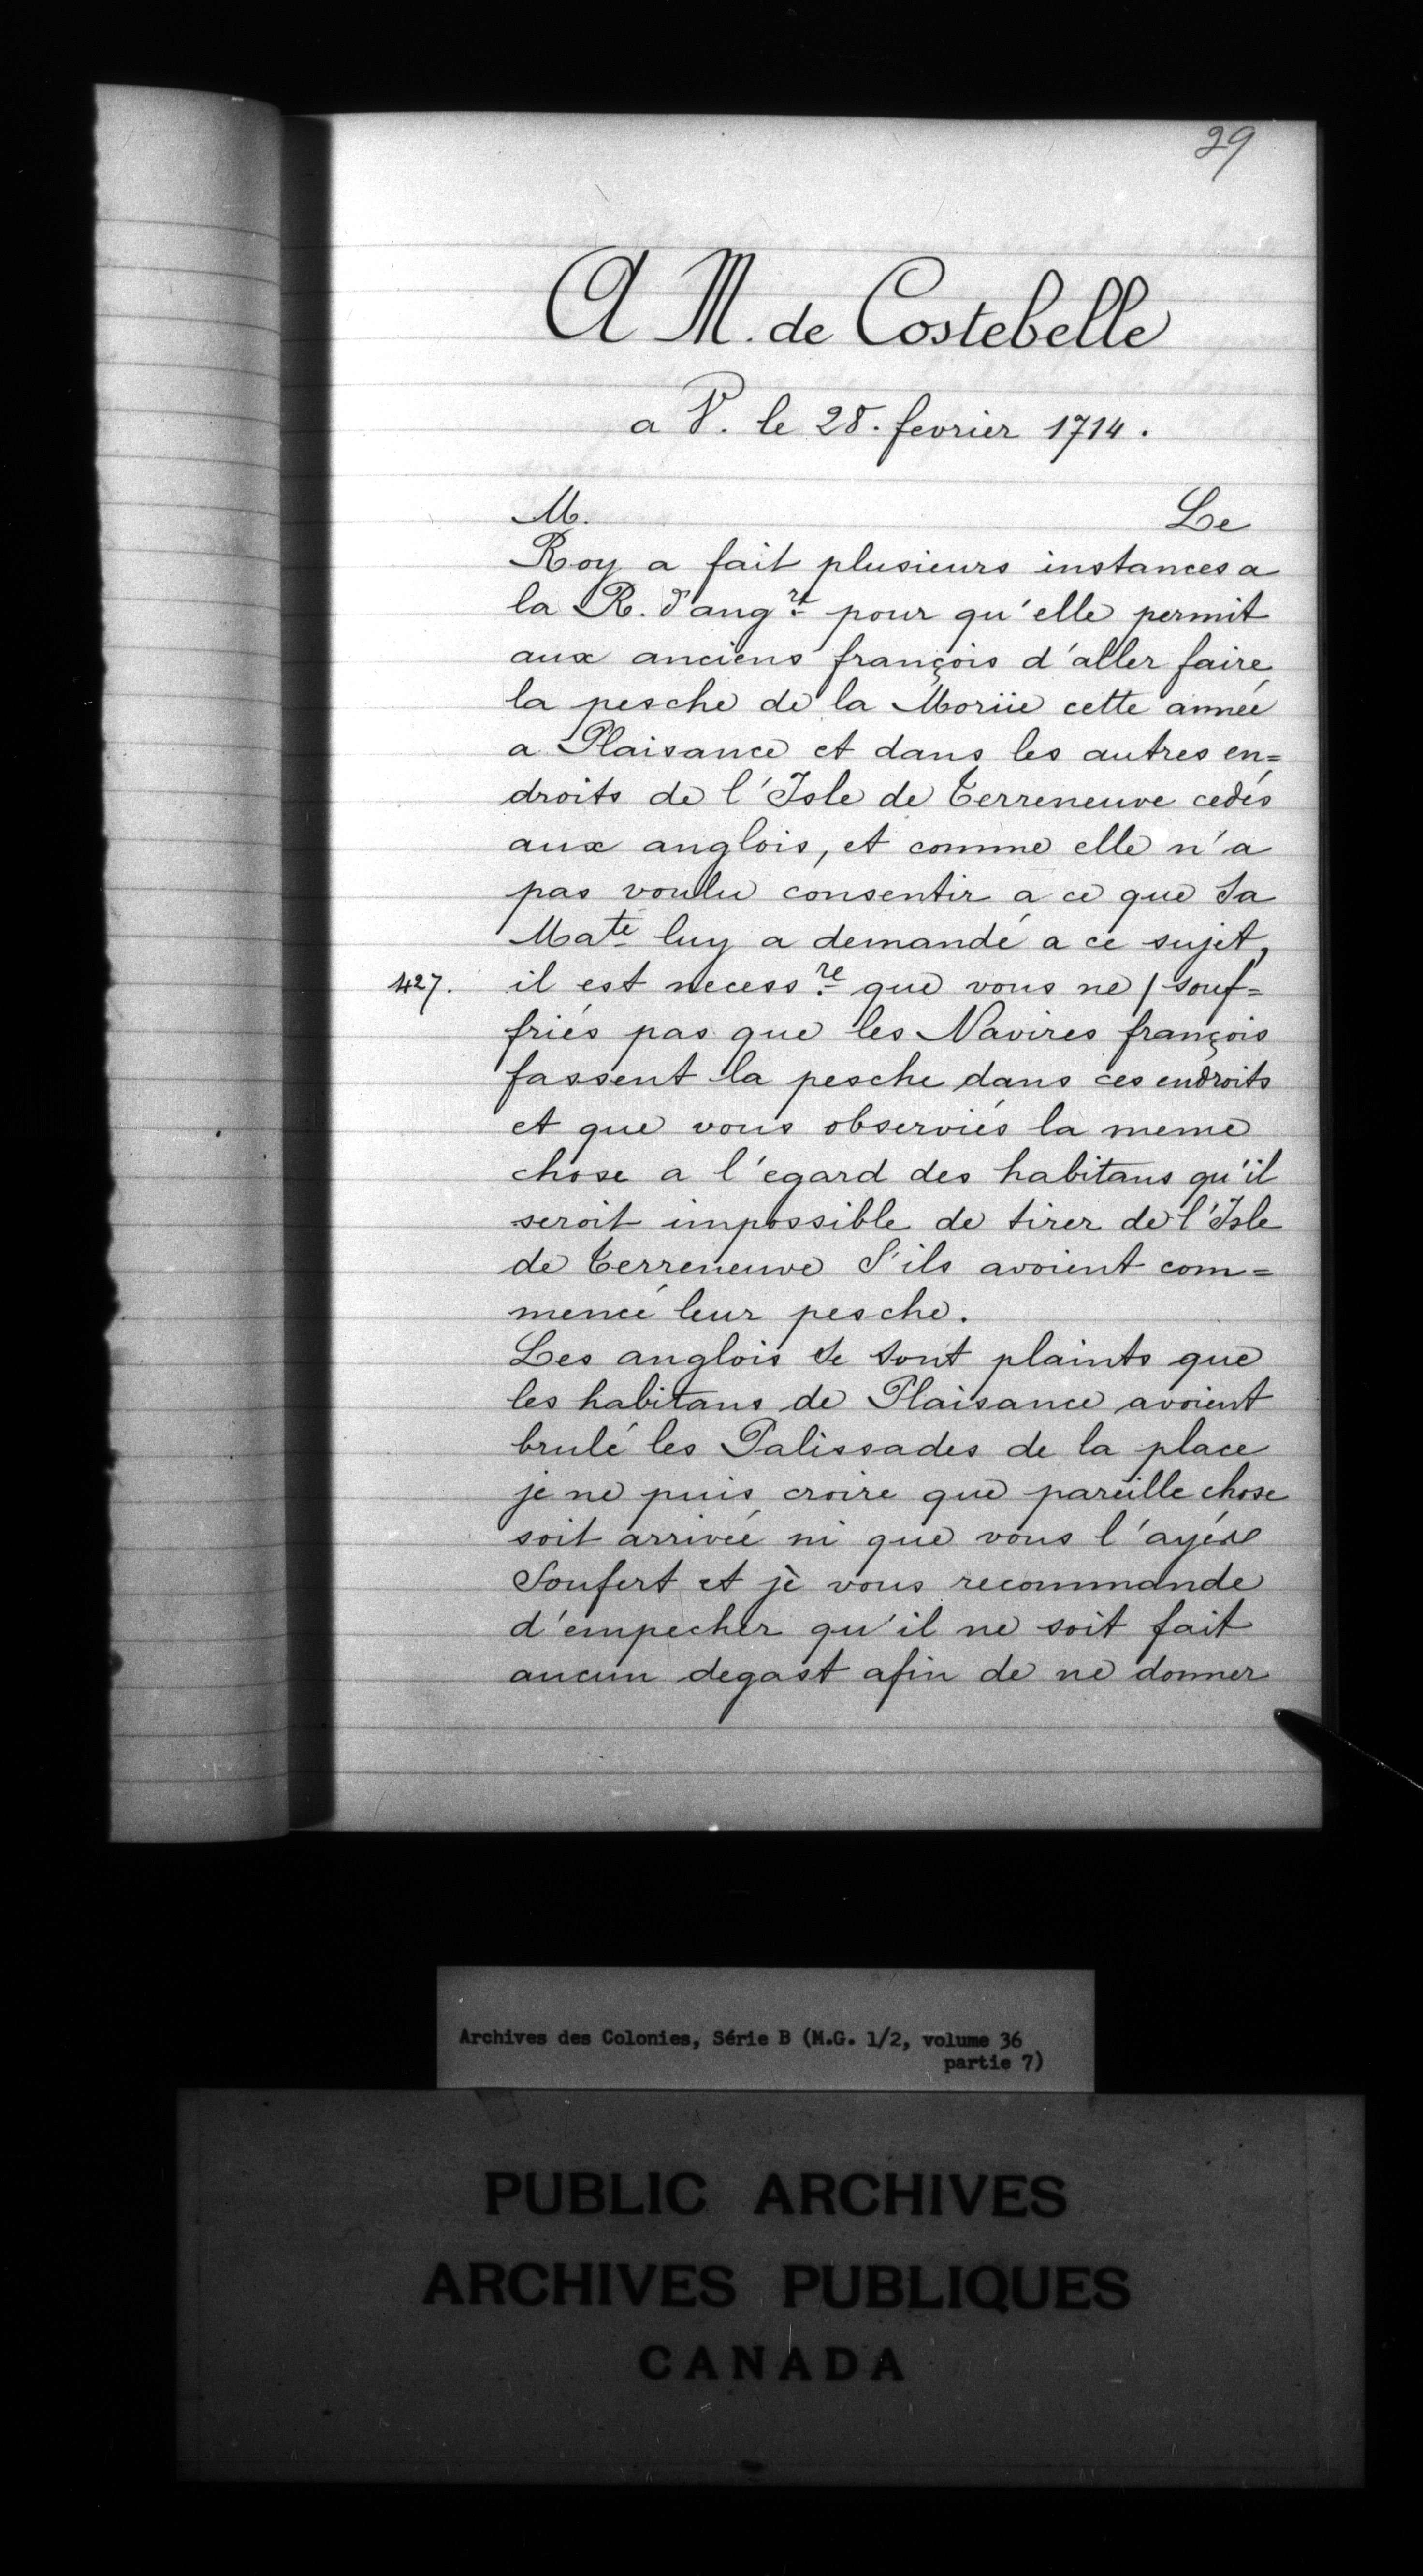 29
A M. de Costebelle
a V. le 28. fevrier 1714.
M. Le
Roy a fait plusieurs instances a
la R. d'ang.re pour qu'elle permit
aux anciens françois d'aller faire
la pesche de la Moriie cette année
a Plaisance et dans les autres en=
droits de l'Isle de Terreneuve cedés
aux anglois, et comme elle n'a
pas voulu consentir a ce que Sa
Maté luy a demandé a ce sujet,
427. il est necess.re que vous ne / souf=
friés pas que les Navires françois
fassent la pesche dans ces endroits
et que vous observiés la meme
chose a l'egard des habitans qu'il
seroit impossible de tirer de l'Isle
de Terreneuve S'ils avoient com=
mencé leur pesche.
Les anglois Se Sont plaints que
les habitans de Plaisance avoient
brulé les Palissades de la place
je ne puis croire que pareille chose
soit arrivée ni que vous l'ayés
Soufert et je vous recommande
d'empecher qu'il ne soit fait
aucun degast afin de ne donner
Archives des Colonies, Série B (M.G. 1/2, volume 36
partie 7)
PUBLIC ARCHIVES
ARCHIVES PUBLIQUES
CANADA